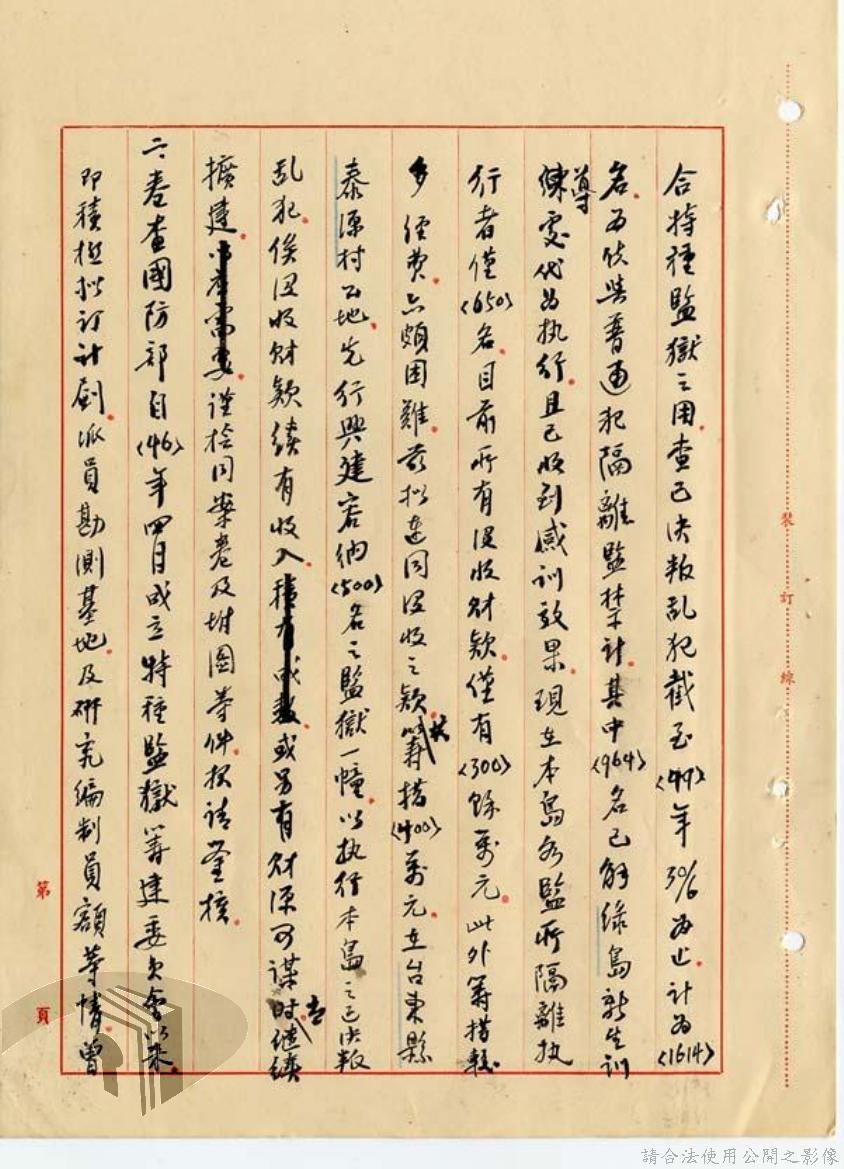 合特種監獄之用.查已決叛乱犯截至<49>年30/6為止.計為<1614>
名.為使與普通犯隔離監禁計.其中<964>名已解綠島新生訓
導
練處代為执行.且已收到感訓效果.現在本島各監所隔離执
行者僅<650>名.目前所有沒收財欵.僅有<300>餘萬元.此外籌措較
多經費.亦頗困難.茲拟連同沒收之欵.籌措<400>萬元.在台東縣
共
泰源村公地.先行興建容納<500>名之監獄一幢.以执行本島之已決叛
乱犯.俟沒收財欵續有收入.或另有財源可謀時.繼續
去
擴建.謹檢同案卷及附圖等件.報請鑒核.
二.卷查國防部自<46>年四月成立特種監獄籌建委員會以來.
即積極拟訂計劃.派員勘測基地.及研究編制員額等情.曾
裝訂線
第 頁
請合法使用公開之影像